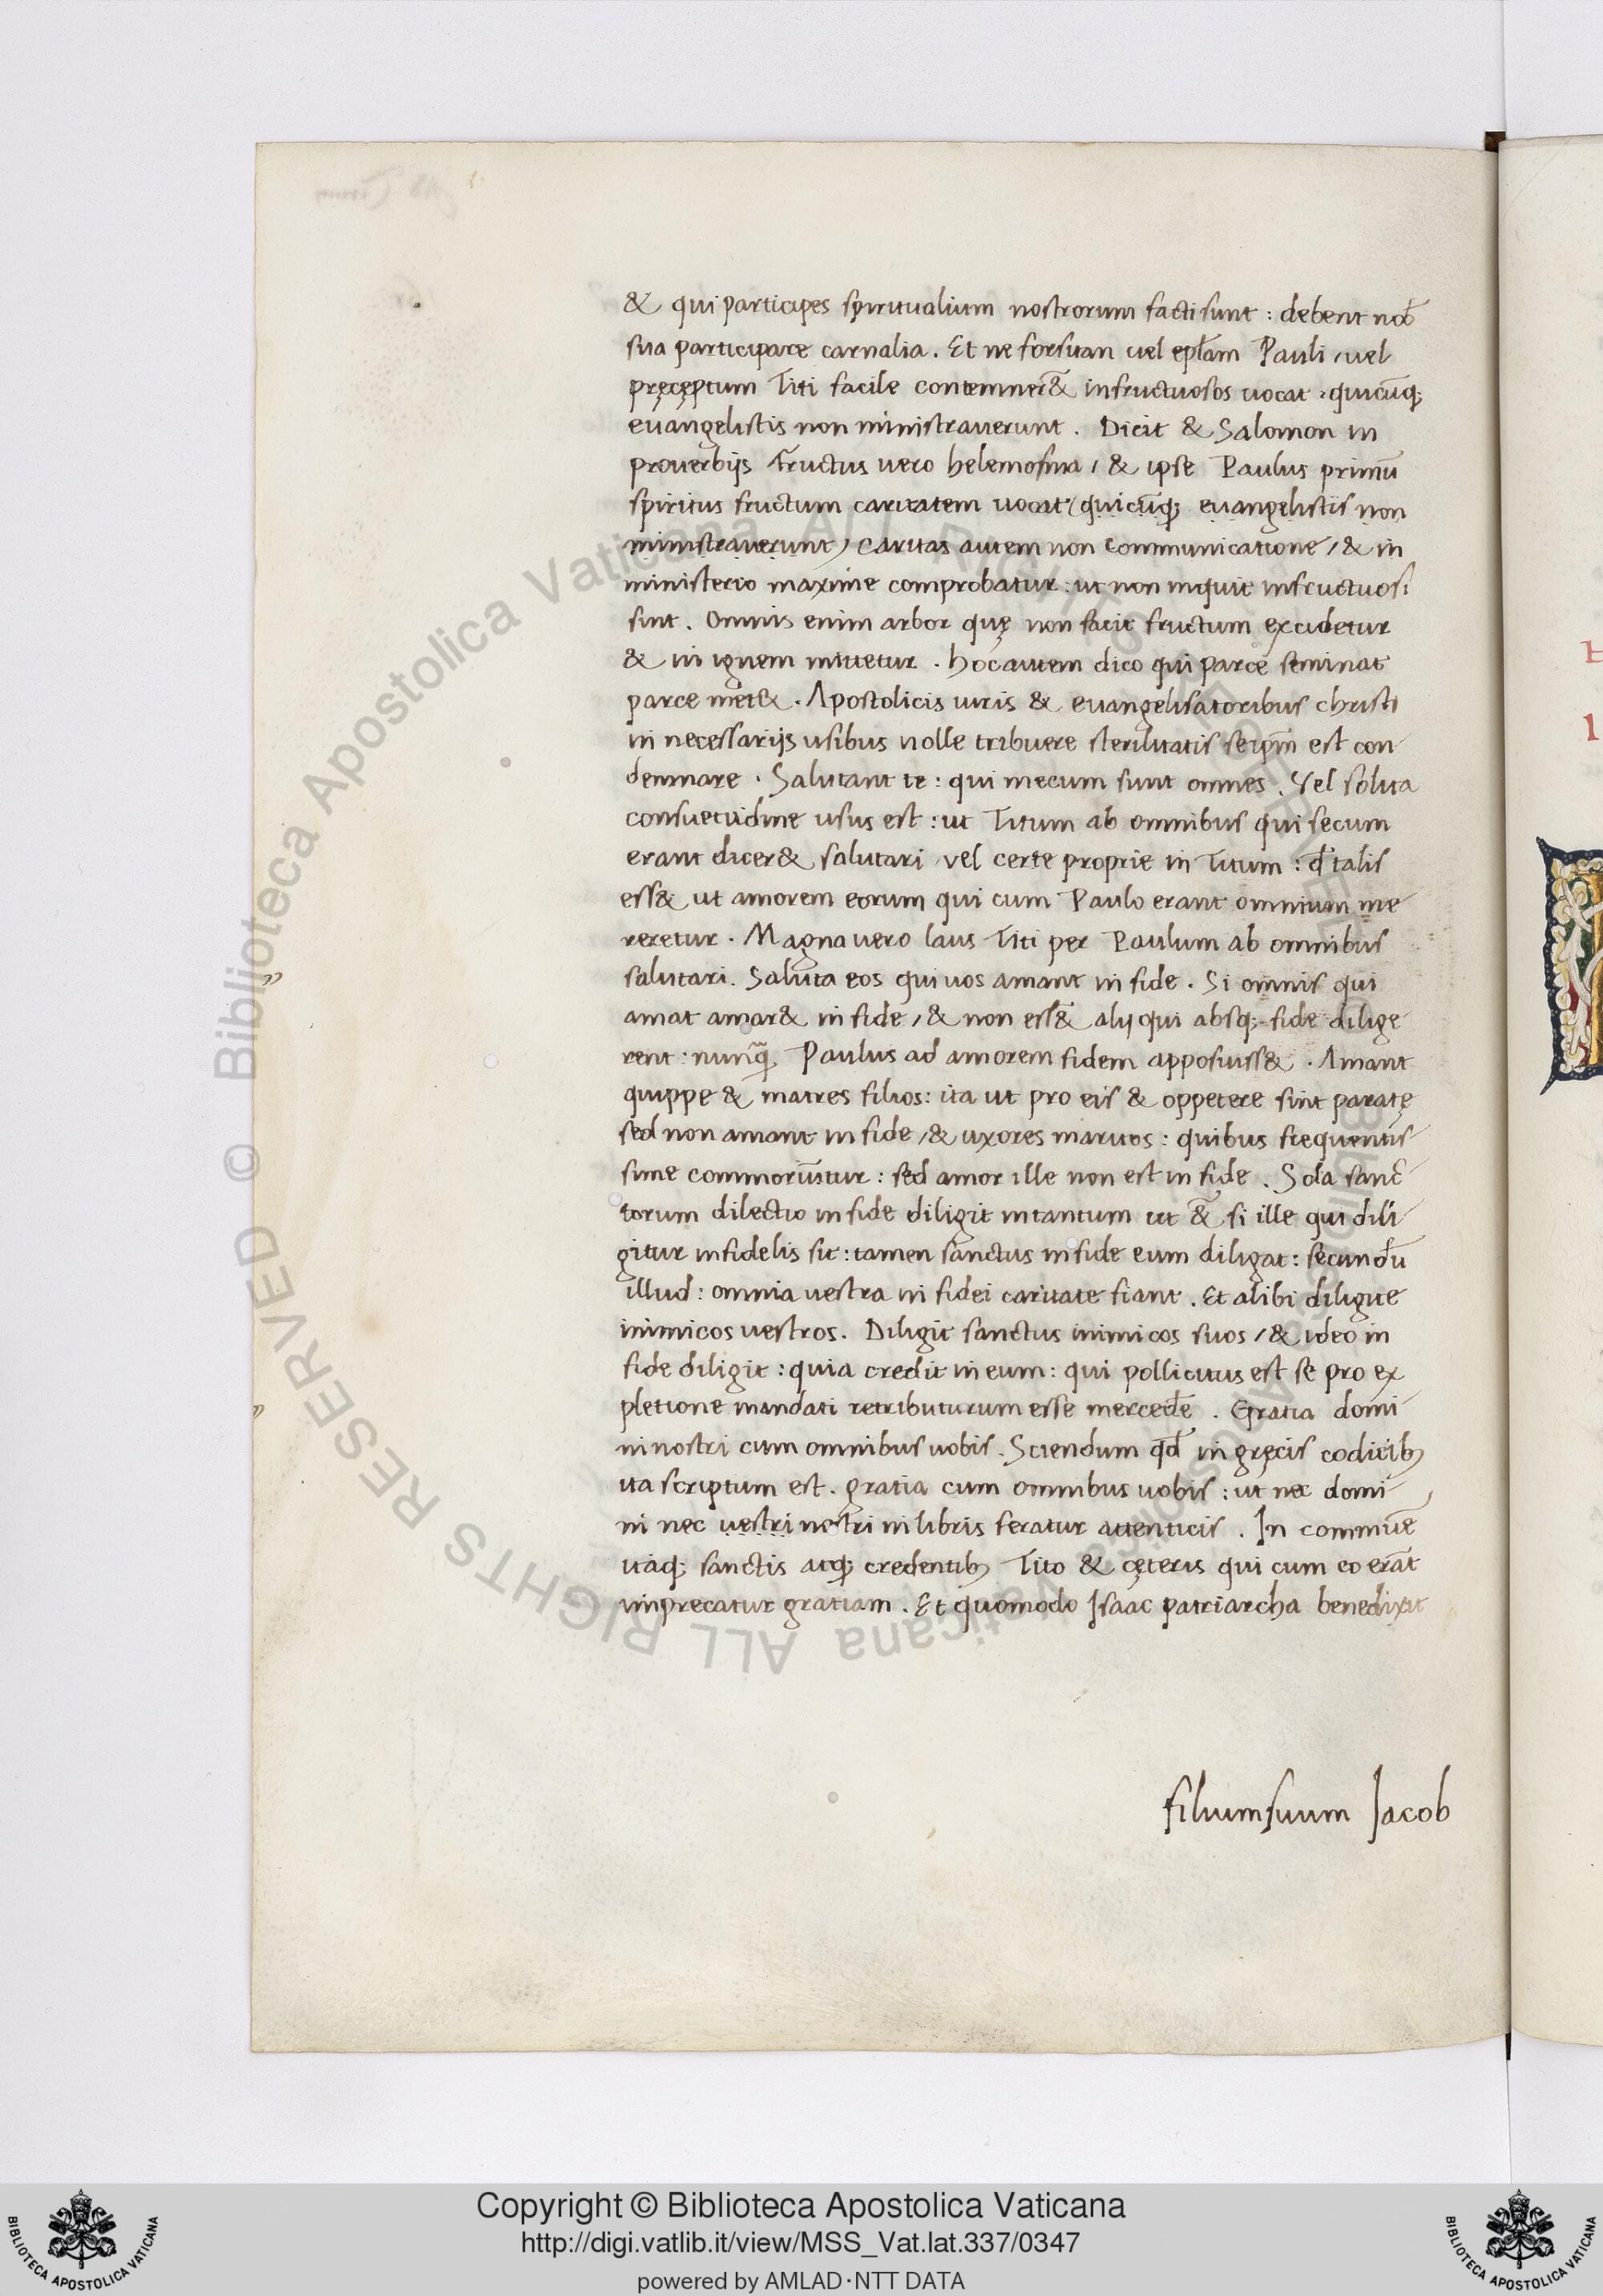 & qui participes spiritualium nostrorum facti sunt : debent nob̄
sua participare carnalia . Et ne forsitan uel epl̄am Pauli / uel
pręcęptum Titi facile contemner&̄ infructuosos uocat , quicūq;
euangelistis non ministrauerunt . Dicit & Salomon in
prouerbijs Fructus uero helemosina / & ipse Paulus primū
spiritus fructum caritatem uocat ( quicūq; euangelistis non
ministrauerunt ) caritas autem non communicatione / & in
ministerio maxime comprobatur : ut non inquit infructuosi
sint . Omnis enim arbor quę non facit fructum excidetur
& in ignem mittetur . hoc autem dico qui parce seminat
parce met& . Apostolicis uiris & euangelisatoribus christi
in necessarijs usibus nolle tribuere sterilitatis seip̄m est con-
demnare . Salutant te : qui mecum sunt omnes . Vel solita
consuetudine usus est : ut Titum ab omnibus qui secum
erant dicer& salutari / vel certe proprie in Titum : q̄ talis
ess& ut amorem eorum qui cum Paulo erant omnium me
reretur . Magna uero laus Titi per Paulum ab omnibus
salutari . Saluta eos qui uos amant in fide . Si omnis qui
amat amar& in fide / & non ess&̄ alij qui absq; fide dilige
rent : nunq̄ Paulus ad amorem fidem apposuiss& . Amant
quippe & matres filios : ita ut pro eis & oppetere sint paratę
sed non amant in fide / & uxores maritos : quibus frequentis-
sime commoriūtur : sed amor ille non est in fide . Sola sanc̄-
torum dilectio in fide diligit intantum ut &̄ si ille qui dili-
gitur infidelis sit : tamen sanctus in fide eum diligat : secundū
illud : omnia uestra in fidei caritate fiant . Et alibi diligite
inimicos uestros . Diligit sanctus inimicos suos / & ideo in
fide diligit : quia credit in eum : qui pollicitus est se pro ex
pletione mandati retributurum esse mercedē . Gratia domi-
ni nostri cum omnibus uobis . Sciendum qd̄ in gręcis codicib;
ita scriptum est . gratia cum omnibus uobis : ut nec domi-
ni nec uestri nostri in libris feratur autenticis . In commūe
itaq; sanctis atq; credentib; Tito & cęteris qui cum eo erāt
imprecatur gratiam . Et quomodo Isaac patriarcha benedixit
filium suum Jacob
Copyright © Biblioteca Apostolica Vaticana
http://digi.vatlib.it/view/MSS_Vat.lat.337/0347
powered by AMLAD·NTT DATA
BIBLIOTECA APOSTOLICA VATICANA
BIBLIOTECA APOSTOLICA VATICANA
© Biblioteca Apostolica Vaticana ALL RIGHTS RESERVED